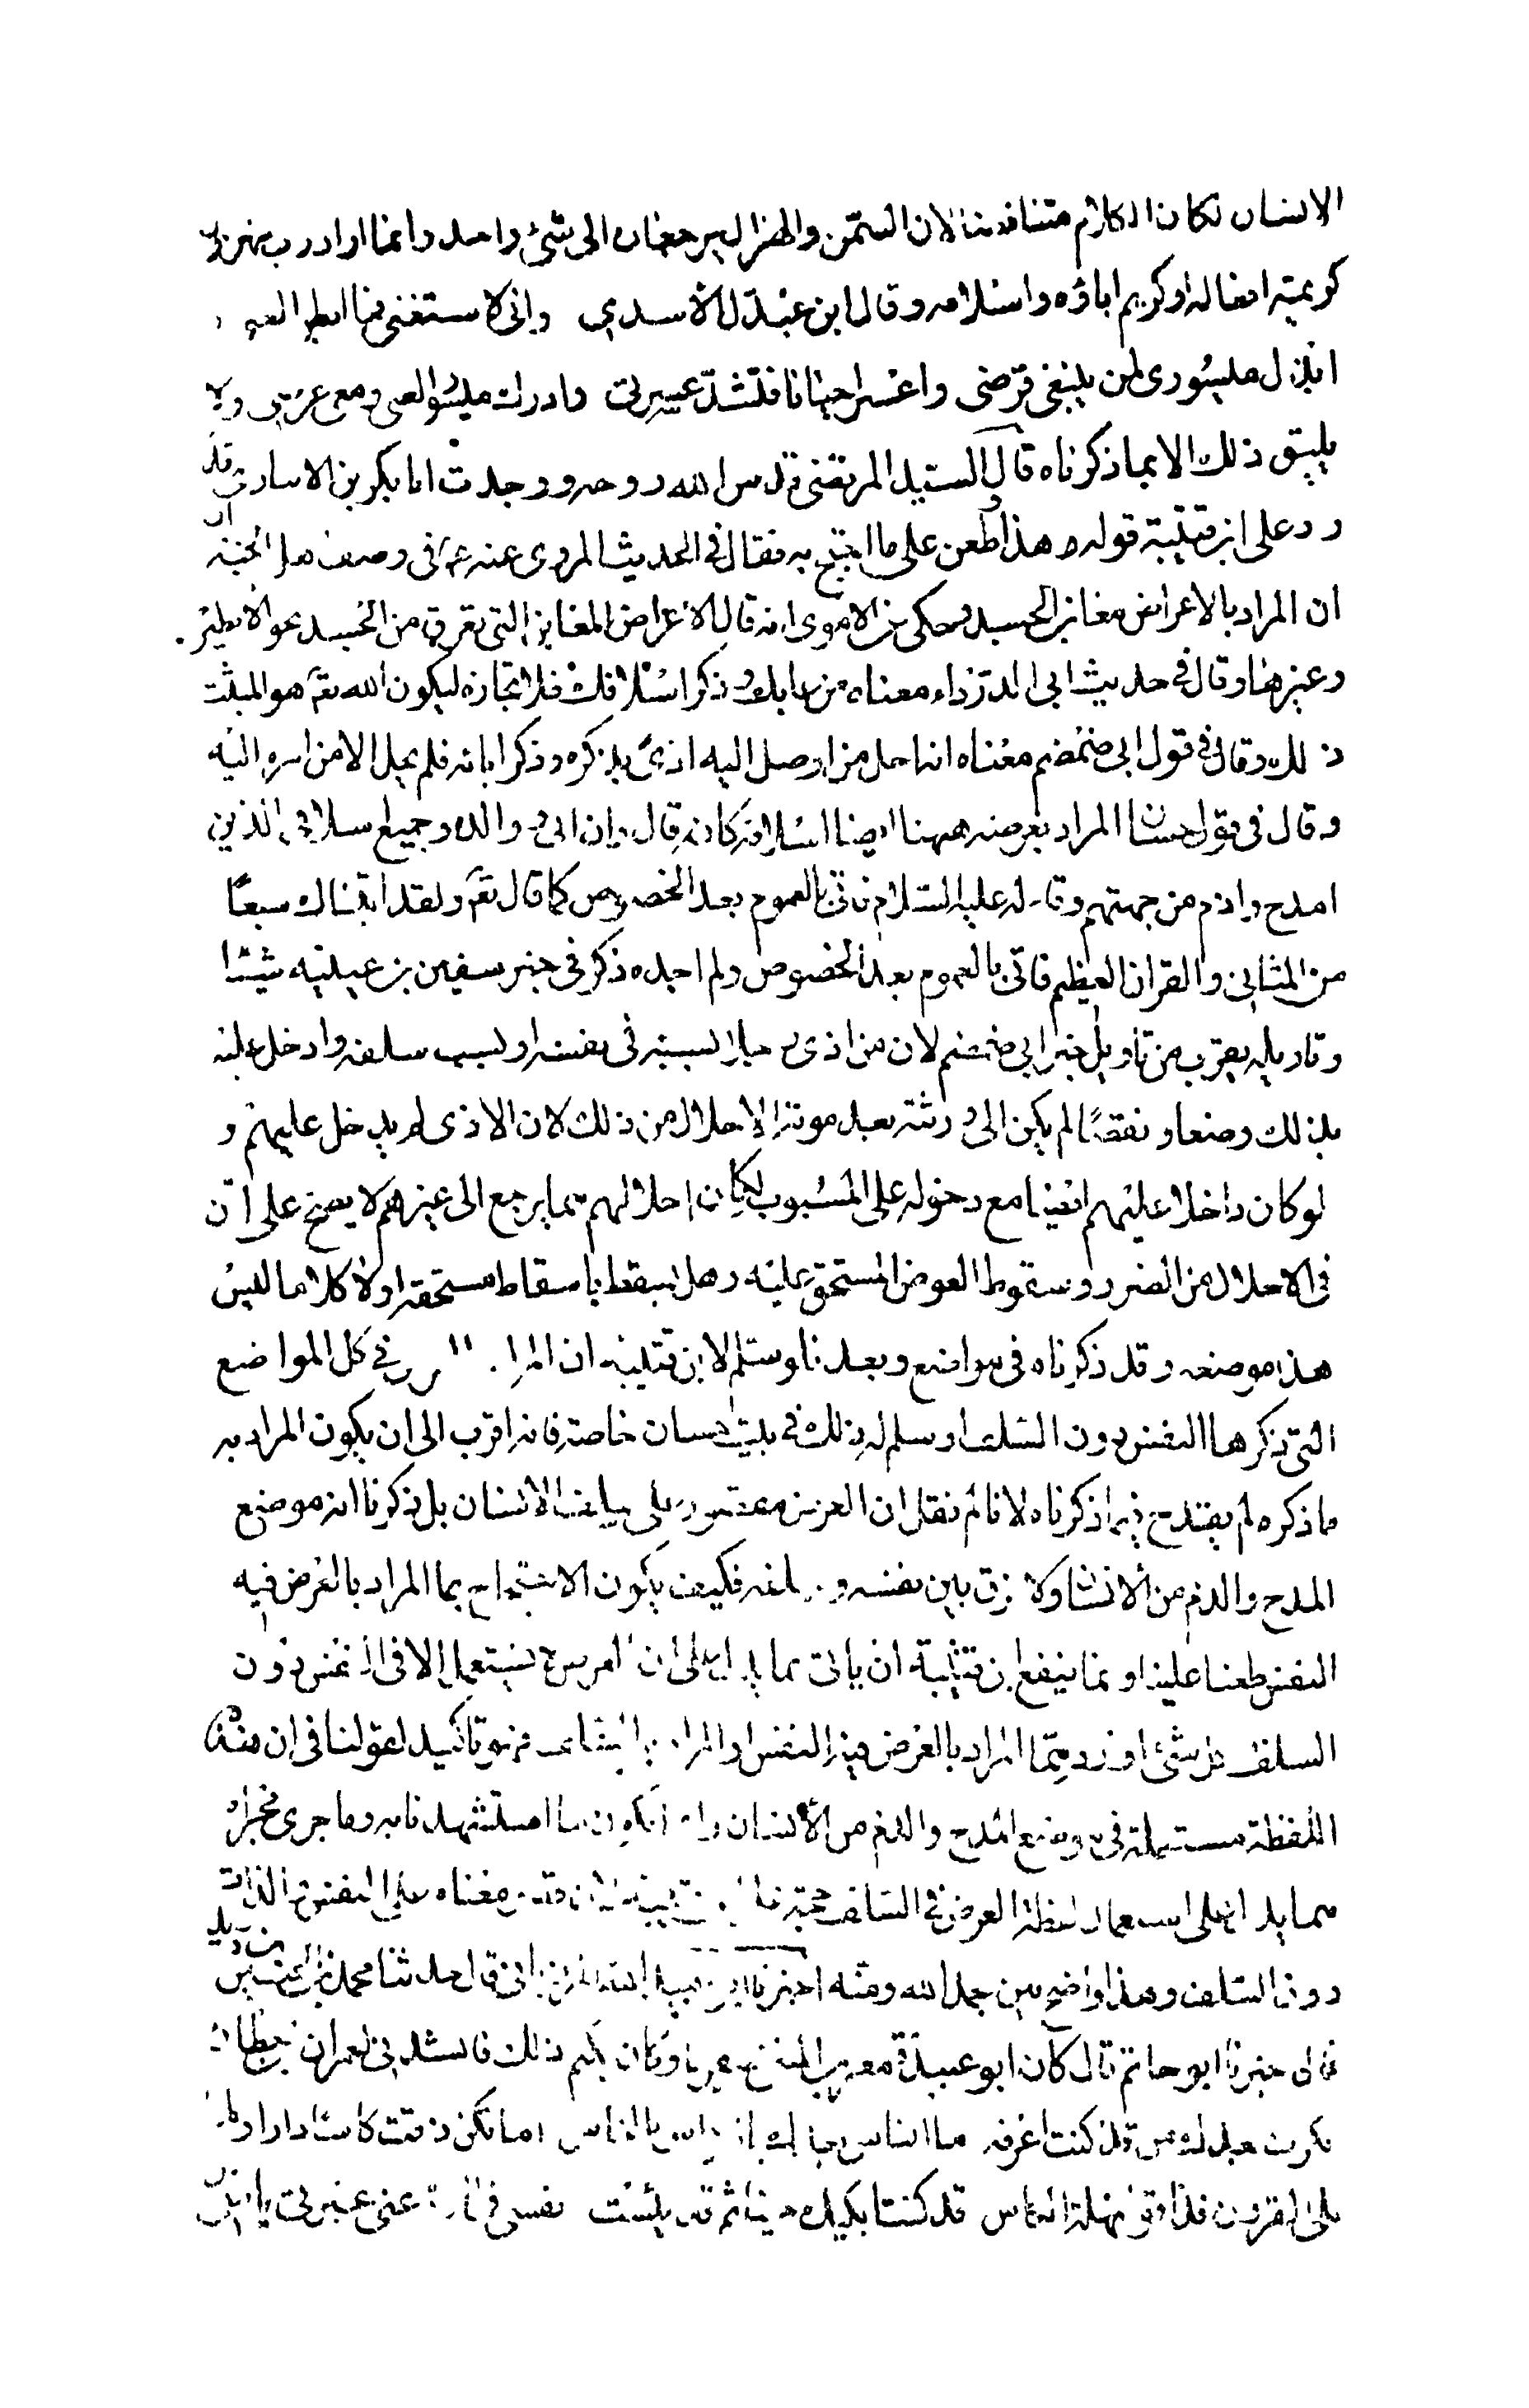 الانسان لكان الكلام متناقضا لان السمن والهزال يرجعان الى شئ واحد وانما اراد رب مهزول
كريمة افعاله او كريم اباؤه واسلافه وقال ابن عبدل الأسدي وانى لاستغنى فما ابطر الغنى
ابذل ميسورى لمن يبتغى قرضى واعسر احيانا فتشتدّ عسرتى وادرك ميسور الغنى ومعى عرضى ولا
يليق ذلك الا بما ذكرناه قال السيد المرتضى قدس الله روحه ووجدت ابا بكر بن الانبارى قد
رد على ابن قتيبة قوله هذا وطعن على ما احتج به فقال فى الحديث المروى عنه ع فى وصف اهل الجنة
ان المراد بالاعراض مغابن الجسد وحكى عن الاموى انه قال الاعراض المغابن التى تعرق من الجسد نحو الابطين
وغيرها وقال فى حديث ابى الدرداء معناه من عابك وذكر اسلافك فلا تجازه ليكون الله تعم هو المثيب
ذلك وقال فى قول ابى ضمضم معناه انه احل من اوصل اليه اذى بذكره وذكر ابائه فلم يحل الا من امره اليه
وقال فى قول حسان المراد بعرضه ههنا ايضا اسلافه كانه قال ان ابى ووالده وجميع اسلافى الذين
امدح واذم من جهتهم وقاء له عليه السلام فاتى بالعموم بعد الخصوص كما قال تعم ولقد اتيناك سبعًا
من المثانى والقران العظيم فاتى بالعموم بعد الخصوص ولم اجده ذكر فى خبر سفين بن عيينه شيئا
وتاويله يقرب من تاويل خبر ابى ضمضم لان من اذى رجلا بسبه فى نفسه او بسب سلفه وادخل عليه
بذلك وضعا ونقصًا لم يكن الى ورثته بعد موته الاحلال من ذلك لان الاذى لم يدخل عليهم و
لو كان داخلا عليهم ايضا مع دخوله على المسبوب لكان احلالهم مما يرجع الى غيرهم لا يصح على ان
فى الاحلال من الضرر وسقوط العوض المستحق عليه وهل يسقط باسقاط مستحقه اولا كلاما ليس
هذا موضعه وقد ذكرناه فى مواضع وبعد فلو سلم لابن قتيبه ان المراد فى كل المواضع
التى ذكرها النفس دون السلف او سلم له ذلك فى بيت حسان خاصة فانه اقرب الى ان يكون المراد به
ما ذكره لم يقدح فيما ذكرناه لانا لم نقل ان العرض مقصور على سلف الانسان بل ذكرنا انه موضع
المدح والذم من الانسان ولا فرق بين نفسه وسلفه فكيف يكون الاحتجاج بما المراد بالعرض فيه
النفس طعنا علينا وانما ينفع ابن قتيبة ان ياتى بما يدل على ان العرض لا يستعمل الا فى النفس دون
السلف وكل شئ اورده مما المراد بالعرض فيه النفس فهو تاكيد لقولنا فى ان هذه
اللفظة مستعملة فى موضع المدح والذم من الانسان وانما يكون ما استشهدنا به وما جرى مجراه
مما يدل على استعمال لفظة العرض فى السلف حجة على ابن قتيبة لانه قصر معناه على النفس والذات
دون السلف وهذا واضح بين بحمد الله ومنه اخبرنا ابو عبيد الله المرزبانى قال حدثنا محمد بن الحسن بن دريد
قال اخبرنا ابو حاتم قال كان ابو عبيدة معمر بن المثنى وكان يكتم ذلك فانشدنى لعمران بن حطان
انكرت بعدك من قد كنت اعرفه ما الناس بعدك يا مرداس بالناس اما تكن ذقت كاسا دار اولها
على القرون فذاقوا نهلة الكاس قد كنت ابكيك حينا ثم قد يئست نفسى